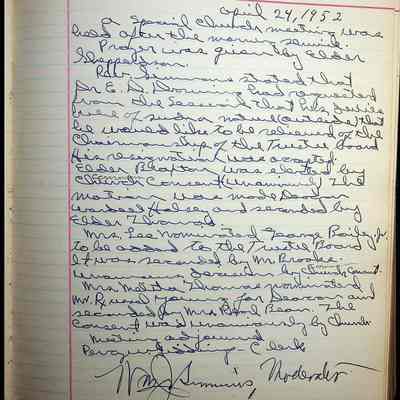 April 24, 1952
A Special Church meeting was
held after the morning service.
Prayer was given by Elder
Shepperdson.
Rev. Simmons stated that
Dr E. D. Downing had requested
from the Session that his duties
were of such a nature (outside) that
he would like to be relieved of the
Chairmanship of the Trustee Board
His resignation was accepted.
Elder was elected by
Church Consent (unanimously) The
motion was made Deacon
and seconded by
Elder
Mrs. Lee nominated George Baily, Jr.
to be added to the Trustee Board
It was seconded by Mr. Brooks.
unanimous decision by Church Consent.
Mrs Mattie Thomas nominated
Mr. Young for Deacon and
seconded by Mrs Bean. The
Consent was unanimously by Church
Meeting adjourned
Clerk
Wm J Simmons, Moderator